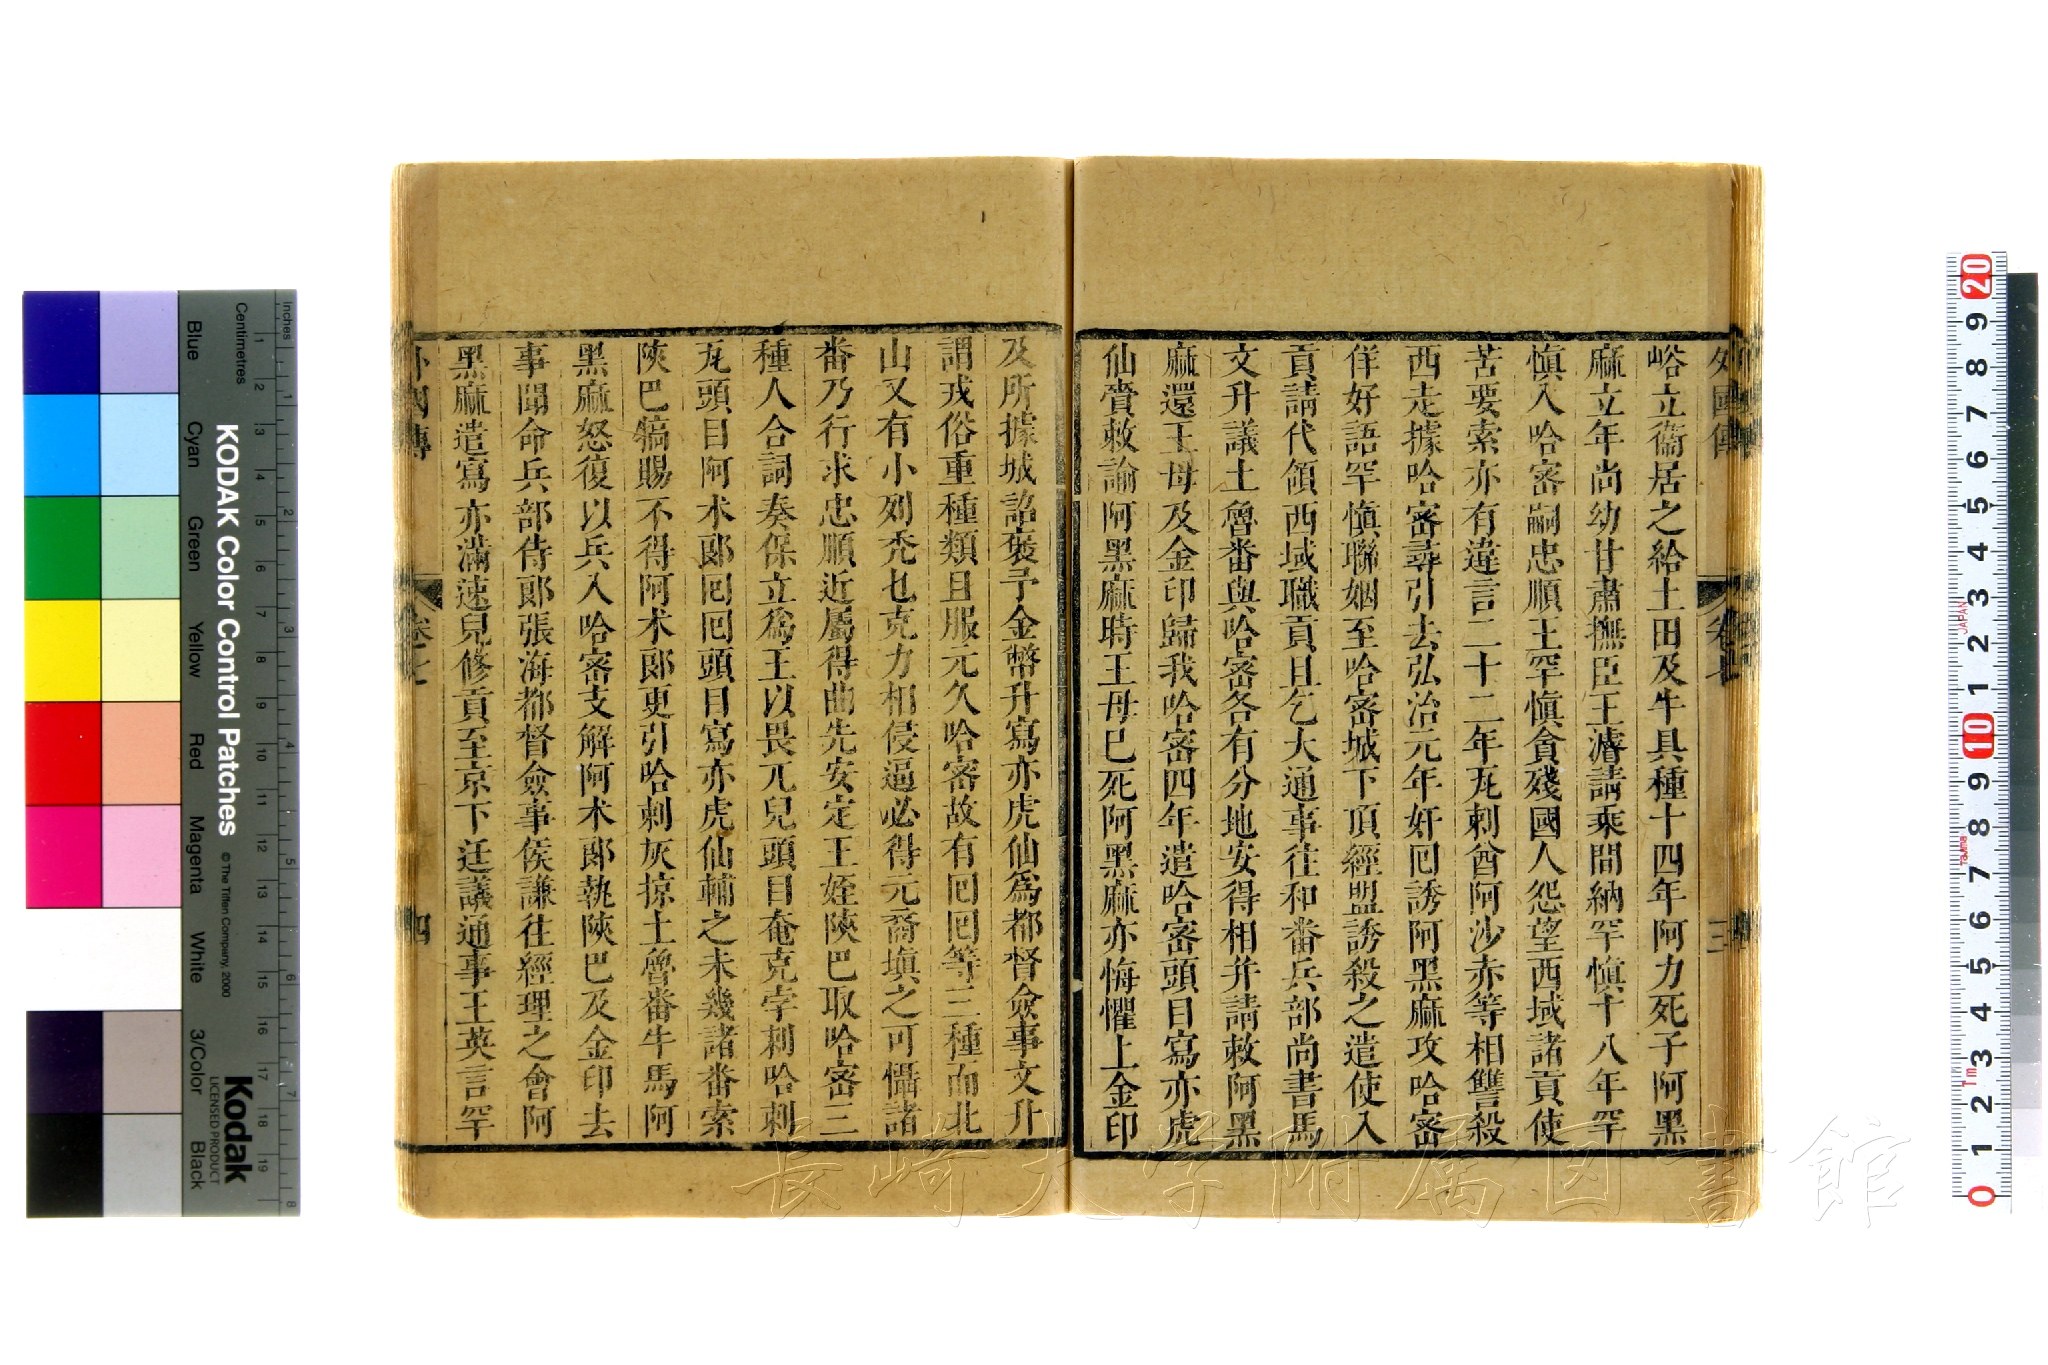 外國傳
卷七
三
峪立衞居之給土田及牛具種十四年阿力死子阿黑
麻立年尚幼甘肅撫臣王濬請乘間納罕愼十八年罕
愼入哈密嗣忠順王罕愼貪殘國人怨望西域諸貢使
苦要索亦有違言二十二年瓦剌酋阿沙赤等相讐殺
西走據哈密尋引去弘治元年奸囘誘阿黑麻攻哈密
佯好語罕愼聯姻至哈密城下頂經盟誘殺之遣使入
貢請代領西域職貢且乞大通事往和番兵部尚書馬
文升議土魯番與哈密各有分地安得相并請敕阿黑
麻還王母及金印歸我哈密四年遣哈密頭目寫亦虎
仙賫敕諭阿黑麻時王母已死阿黑麻亦悔懼上金印
及所據城詔褒予金幣升寫亦虎仙爲都督僉事文升
謂戎俗重種類且服元久哈密故有囘囘等三種而北
山又有小列禿乜克力相侵逼必得元裔塡之可懾諸
番乃行求忠順近屬得曲先安定王姪陝巴取哈密三
種人合詞奏保立爲王以畏兀兒頭目奄克孛剌哈剌
瓦頭目阿木郞囘囘頭目寫亦虎仙輔之未幾諸番索
陝巴犒賜不得阿木郞更引哈剌灰掠土魯番牛馬阿
黑麻怒復以兵入哈密支解阿木郞執陝巴及金印去
事聞命兵部侍郞張海都督僉事侯謙往經理之會阿
黑麻遣寫亦滿速兒修貢至京下廷議通事王英言罕
外國傳
卷七
四
KODAK Color Control Patches
© The Tiffen Company, 2000
Kodak
LICENSED PRODUCT
Inches
Centimetres
Blue
Cyan
Green
Yellow
Red
Magenta
White
3/Color
Black
長崎大学附属図書館